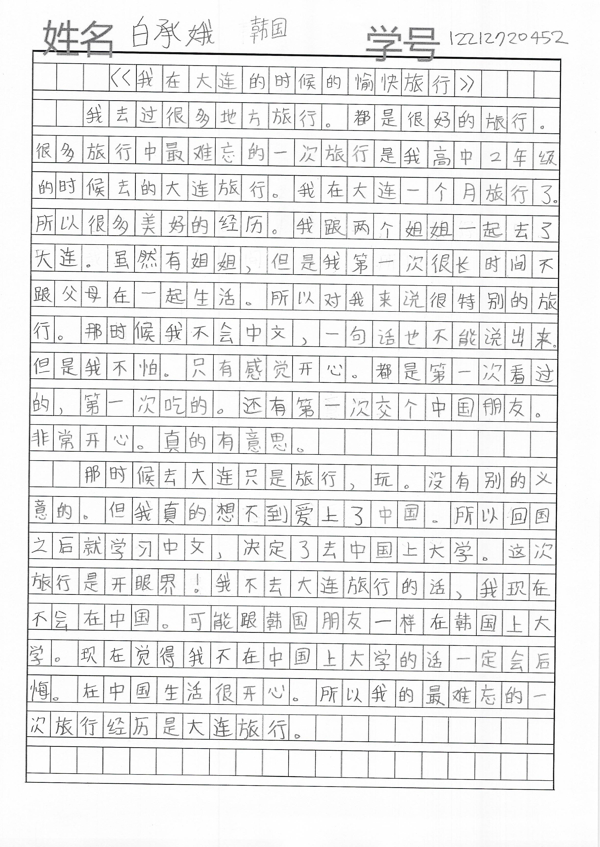 姓名 白承娥 韩国 学号 12212720452
《我在大连的时候的愉快旅行》
我去过很多地方旅行。都是很好的旅行。
很多旅行中最难忘的一次旅行是我高中2年级
的时候去的大连旅行。我在大连一个月旅行了.
所以很多美好的经历。我跟两个姐姐一起去了
大连。虽然有姐姐，但是我第一次很长时间不
跟父母在一起生活。所以对我来说很特别的旅
行。那时候我不会中文，一句话也不能说出来.
但是我不怕。只有感觉开心。都是第一次看过
的，第一次吃的。还有第一次交个中国朋友。
非常开心。真的有意思。
那时候去大连只是旅行，玩。没有别的义
意的。但我真的想不到爱上了中国。所以回国
之后就学习中文，决定了去中国上大学。这次
旅行是开眼界！我不去大连旅行的话，我现在
不会在中国。可能跟韩国朋友一样在韩国上大
学。现在觉得我不在中国上大学的话一定会后
悔。在中国生活很开心。所以我的最难忘的一
次旅行经历是大连旅行。